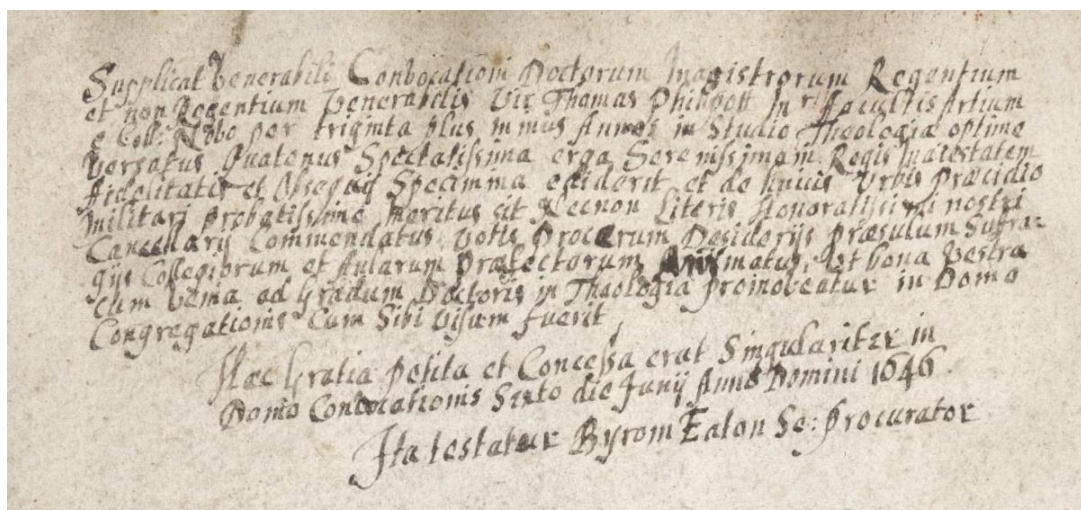 Supplicat Venerabili Convocationi Doctorum Magistrorum Regentium
et non Regentium Venerabilis Vir Thomas Philpott In Facultis Artium
e Coll: Novo per triginta plus minus Annos in Studio Theologia optime
versatus Quatenus Spectatissima erga Serenissimam Regis Maiestatem
fidelitatis et Obsequij Specimina ediderit et de huius Urbis Præcidio
militari probatissime meritus sit Necnon Literis Honoratissimi nostri
Cancellarij Commendatus, Votis Procerum Desiderijs Præsulum Suffra-
gijs Collegiorum et Aularum Præfectorum Animatus, Ut bona Vestra
cum Venia ad Gradum Doctoris in Theologia promoveatur in Domo
Congregationis Cum Sibi Visum fuerit
Hæc Gratia petita et Concessa erat Singulariter in
Domo Convocationis Sexto die Junij Anno Domini 1646
Ita testatur Byrom Eaton Se: procurator